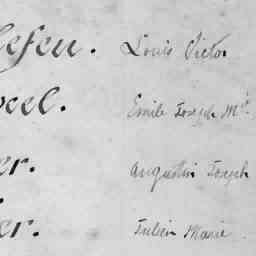 lesen. Louis Victor
Emile Joseph Mie.
er. Augustin Joseph
er. Julien Marie